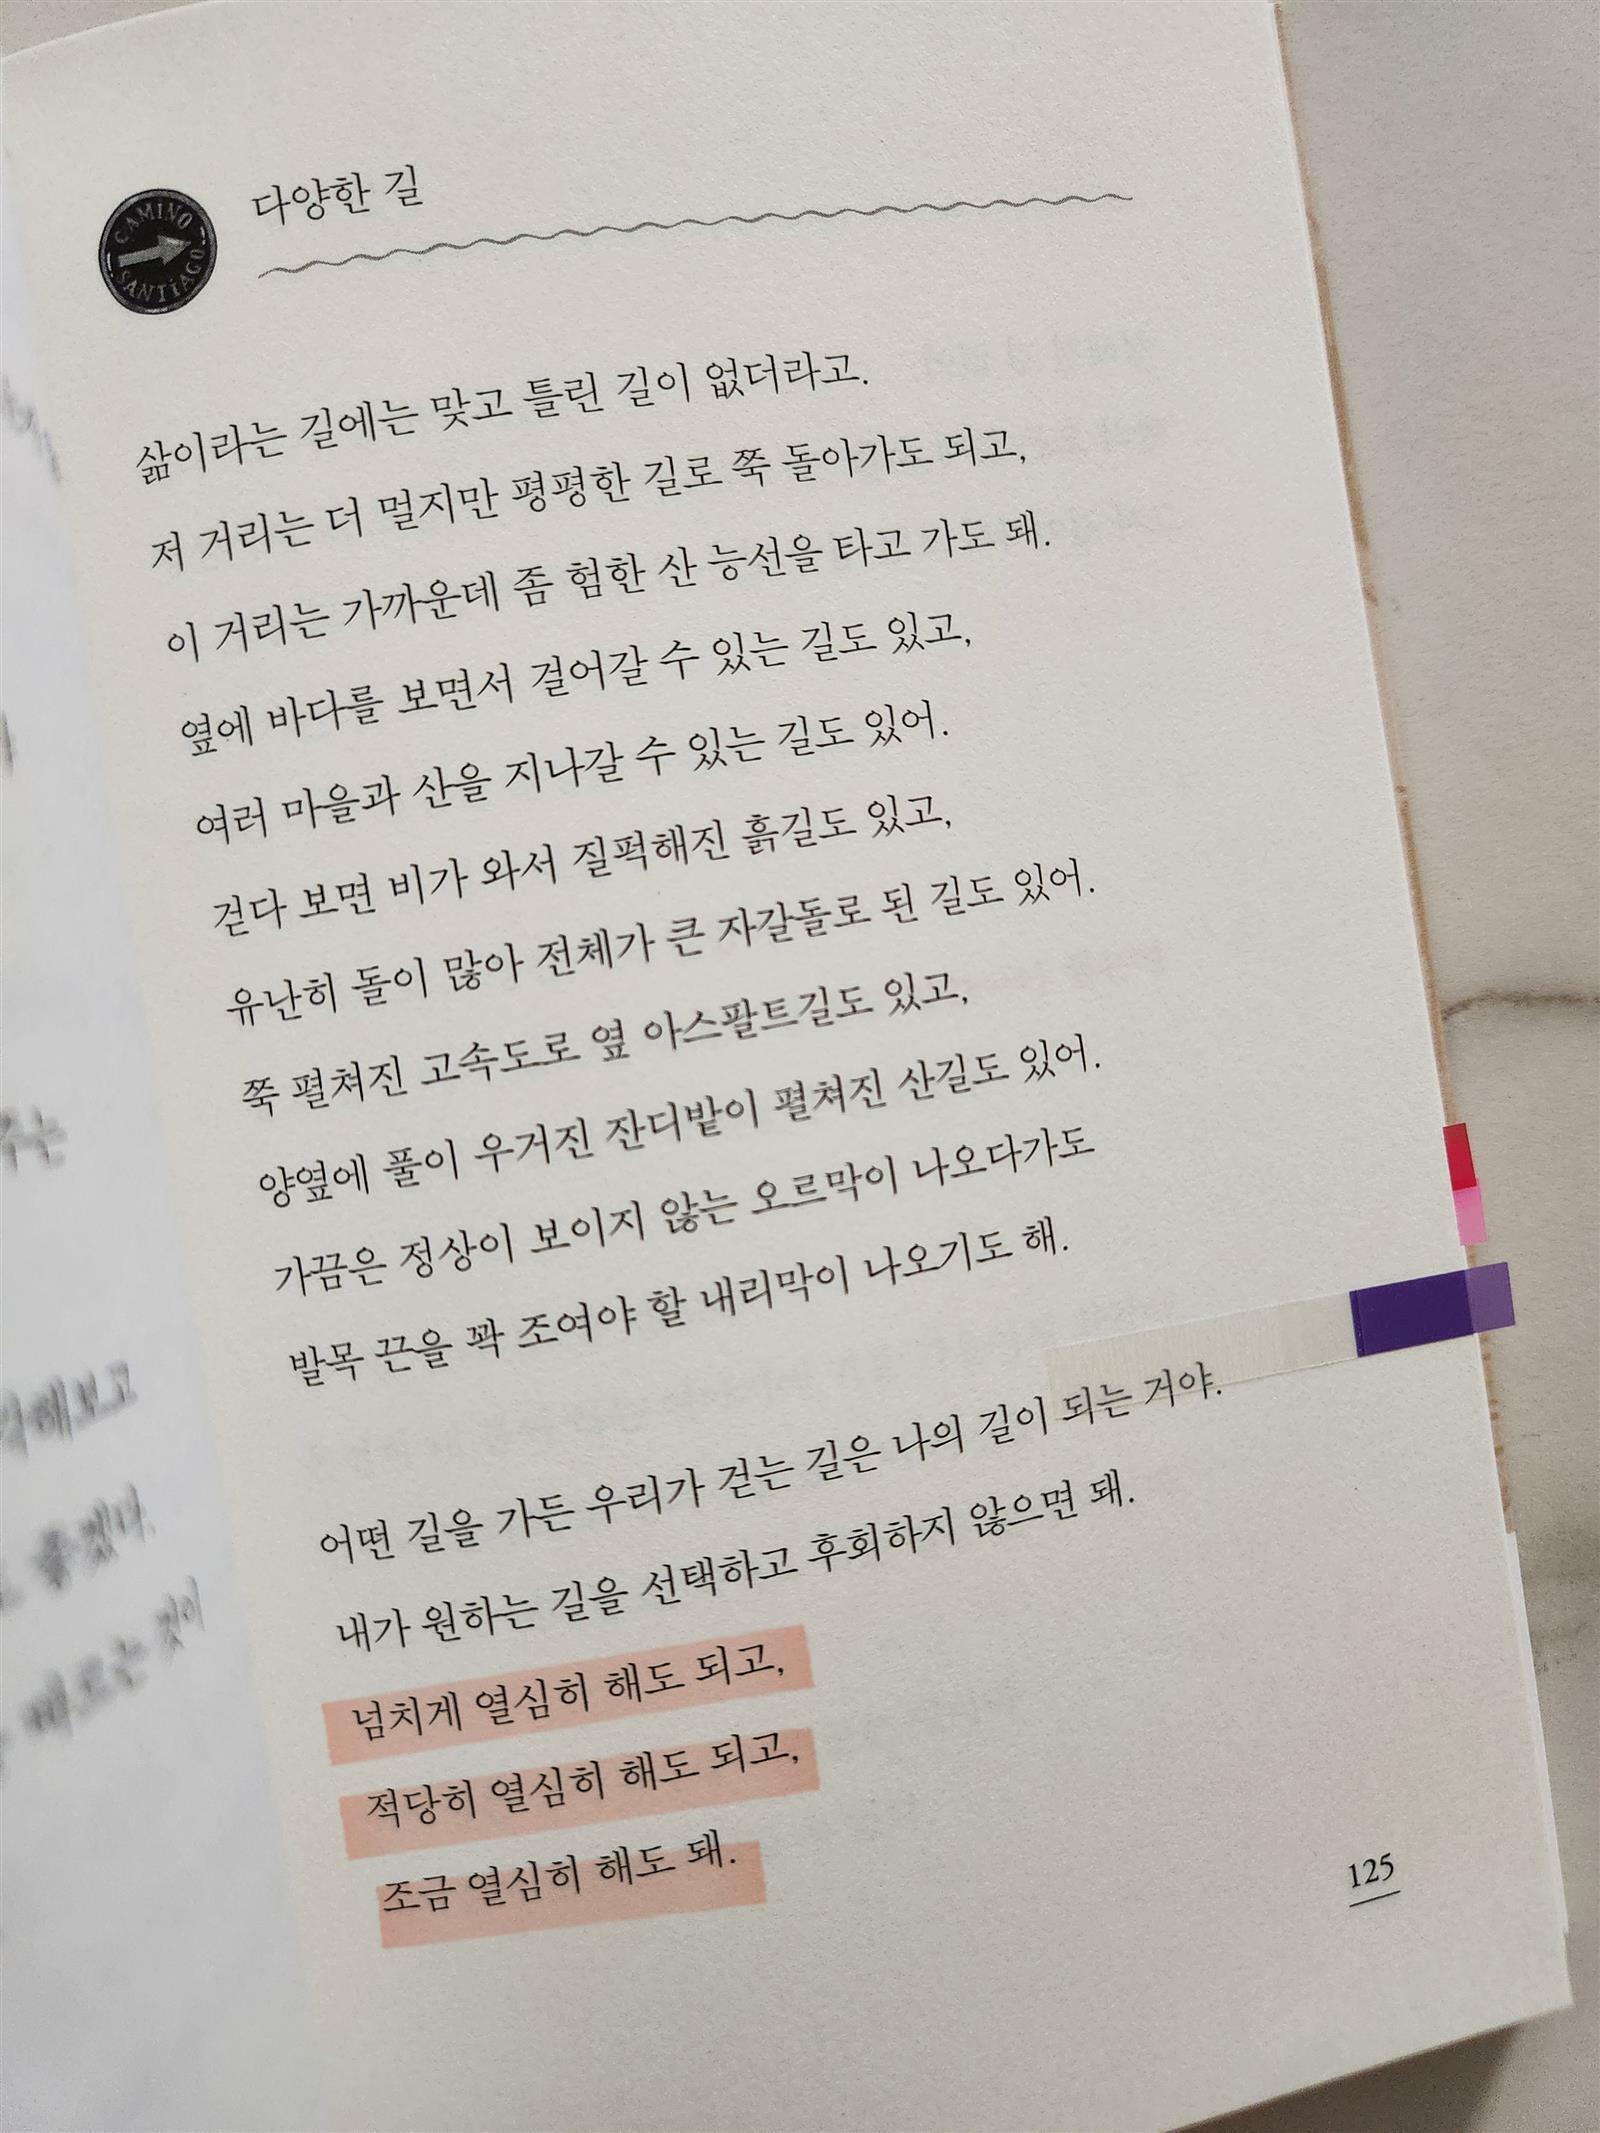 CAMINO
SANTiAGO
다양한 길
삶이라는 길에는 맞고 틀린 길이 없더라고.
저 거리는 더 멀지만 평평한 길로 쭉 돌아가도 되고,
이 거리는 가까운데 좀 험한 산 능선을 타고 가도 돼.
옆에 바다를 보면서 걸어갈 수 있는 길도 있고,
여러 마을과 산을 지나갈 수 있는 길도 있어.
걷다 보면 비가 와서 질퍽해진 흙길도 있고,
유난히 돌이 많아 전체가 큰 자갈돌로 된 길도 있어.
쭉 펼쳐진 고속도로 옆 아스팔트길도 있고,
양옆에 풀이 우거진 잔디밭이 펼쳐진 산길도 있어.
가끔은 정상이 보이지 않는 오르막이 나오다가도
발목 끈을 꽉 조여야 할 내리막이 나오기도 해.
어떤 길을 가든 우리가 걷는 길은 나의 길이 되는 거야.
내가 원하는 길을 선택하고 후회하지 않으면 돼.
넘치게 열심히 해도 되고,
적당히 열심히 해도 되고,
조금 열심히 해도 돼.
125